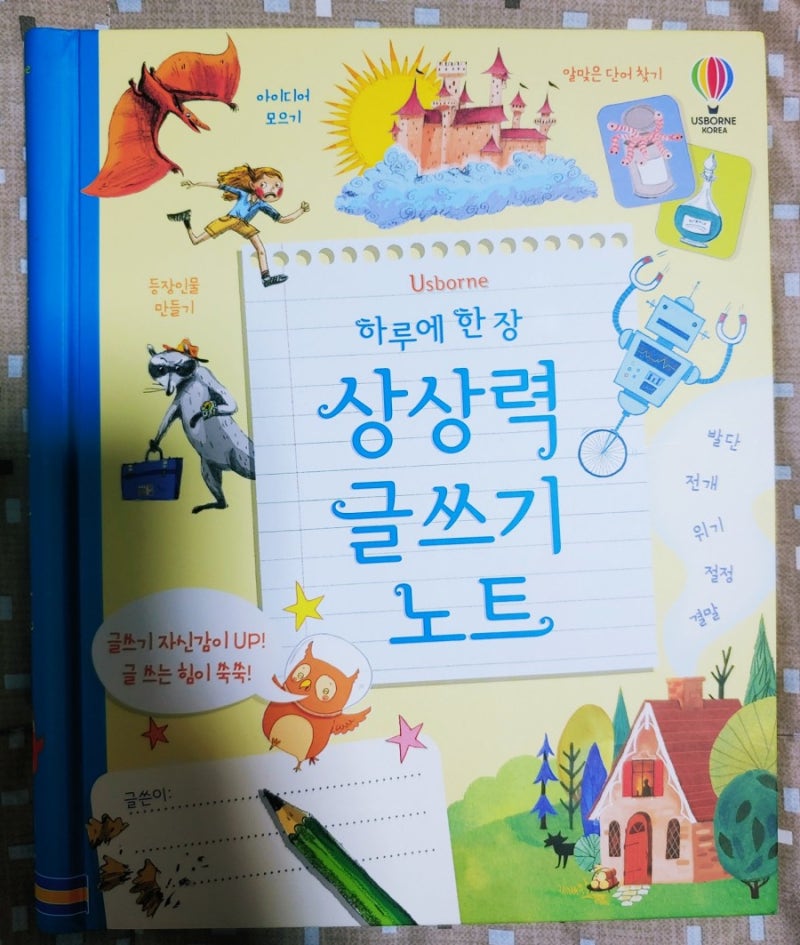 아이디어
모으기
알맞은 단어 찾기
USBORNE
KOREA
등장인물
만들기
Usborne
하루에 한 장
상상력
글쓰기
노트
발단
전개
위기
절정
결말
글쓰기 자신감이 UP!
글 쓰는 힘이 쑥쑥!
글쓴이: